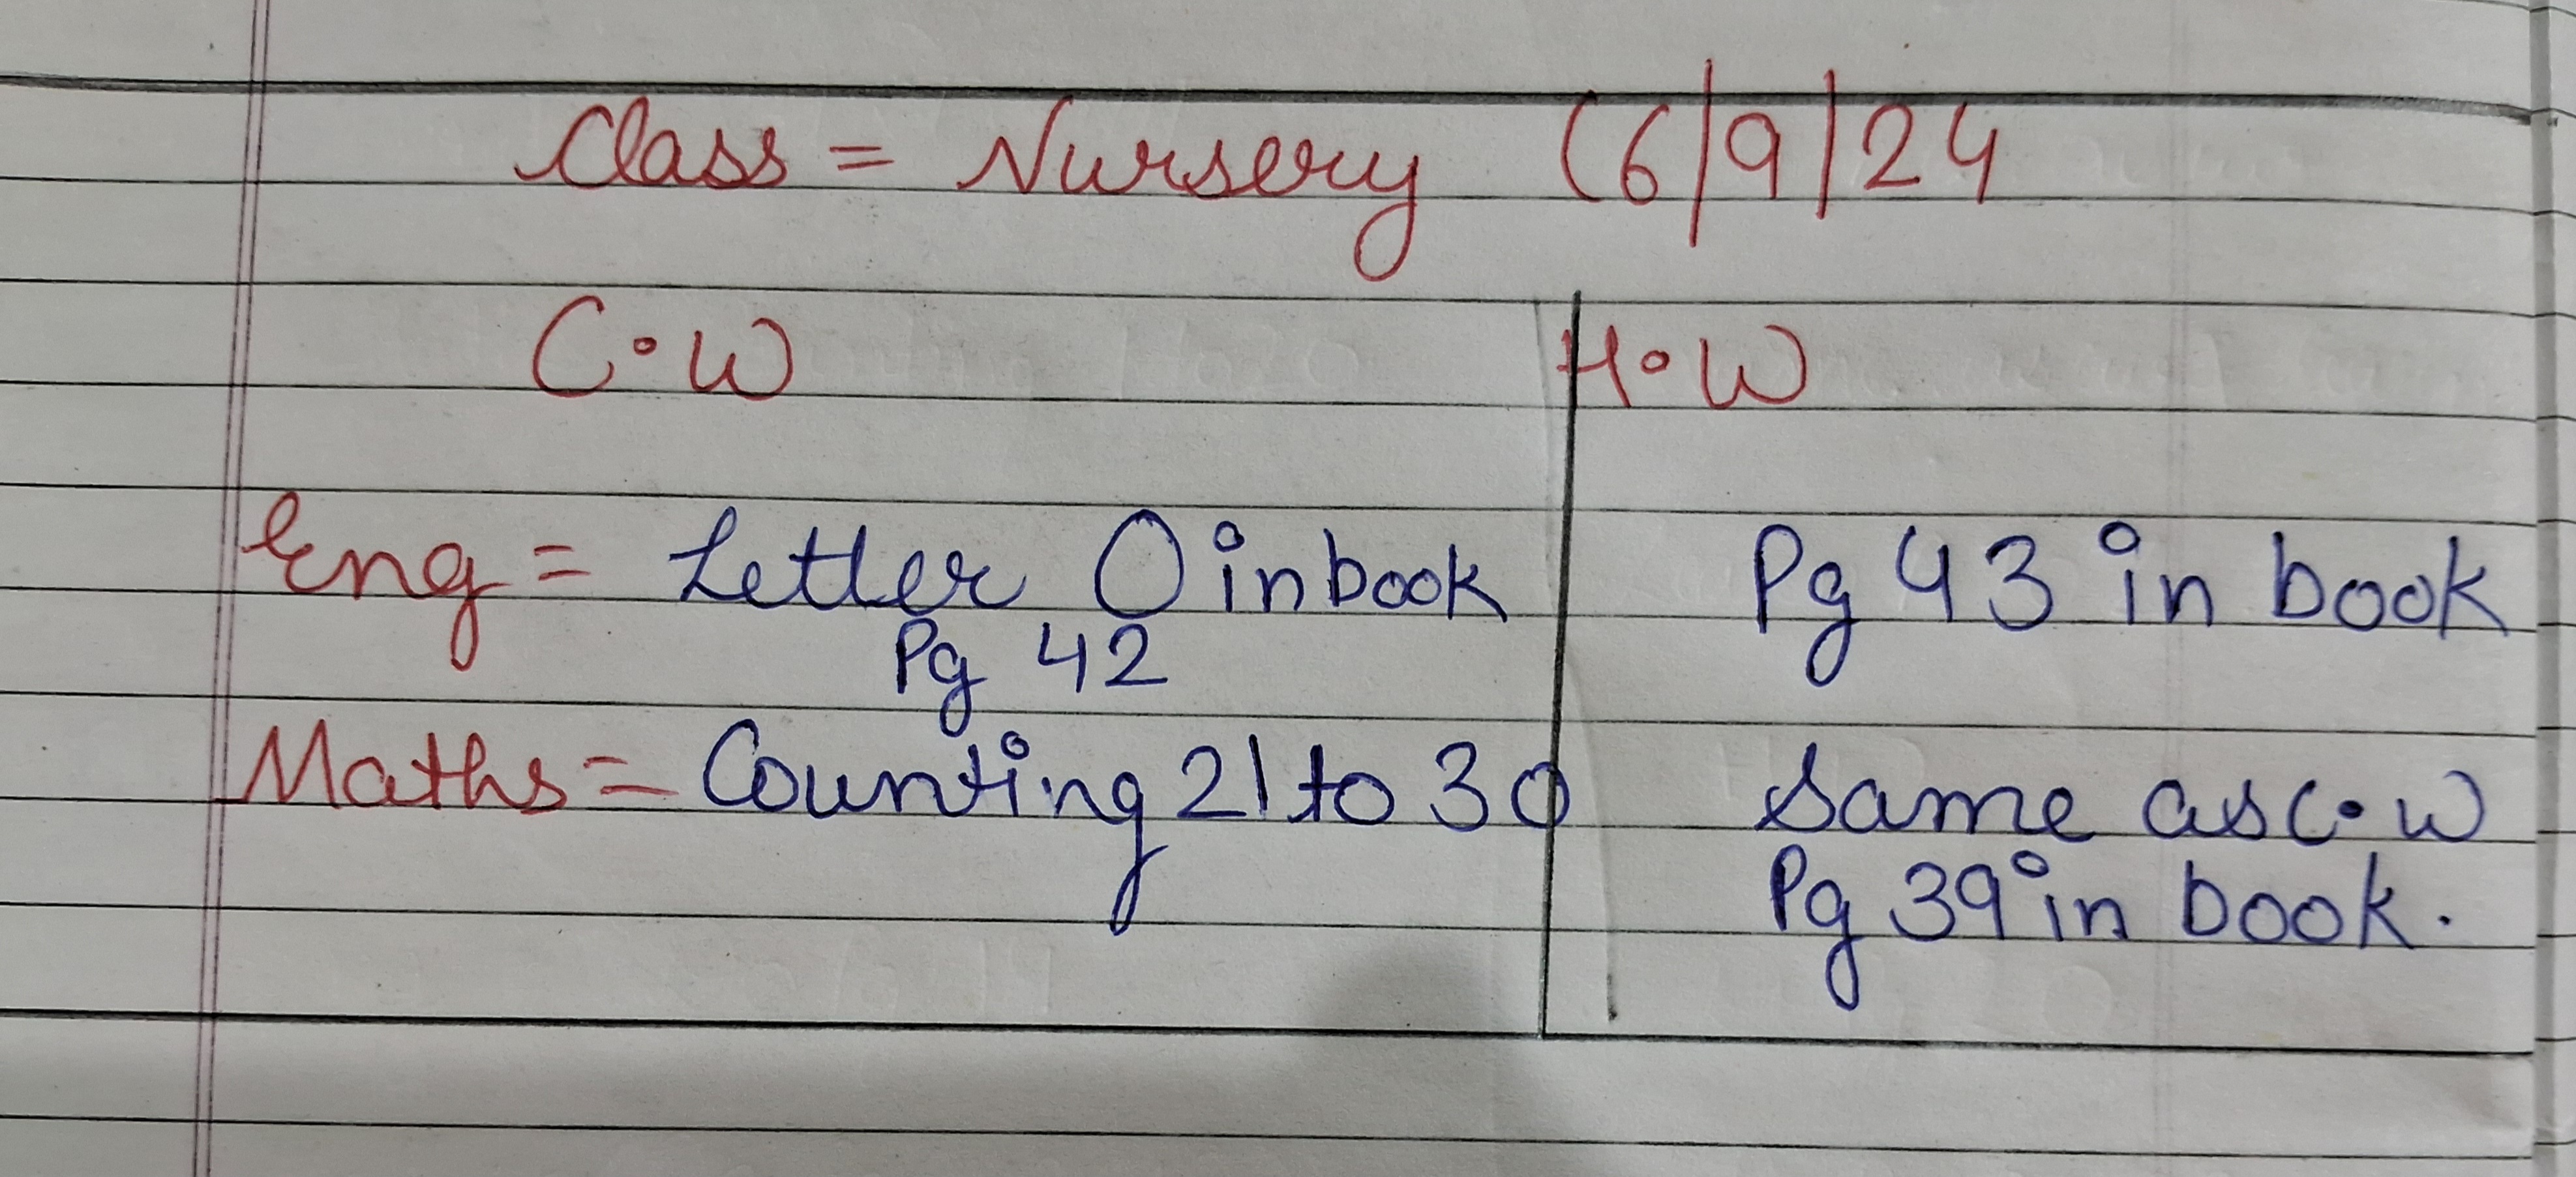 Class = Nursery (6/9/24
C.W H.W
Eng = Letter O in book Pg 43 in book
Pg 42
Maths = Counting 21 to 30 Same as C.W
Pg 39 in book.